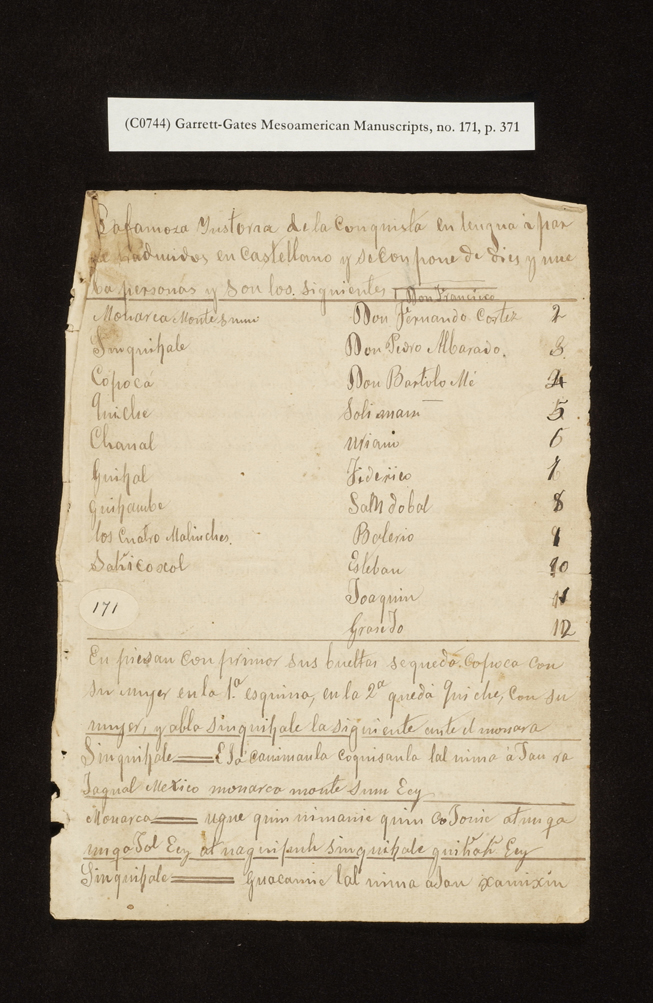 (C0744) Garrett-Gates Mesoamerican Manuscripts, no. 171, p. 371
La famoza Ystoria de la Conquista en lengua a par
en Castellano y se con pone de dies y nue
ba personas y son los siguientes Don Francisco
Monarca Monte sumo Don Fernando Cortez 2
Sinquihale Don Pedro Albarado. 3
Copocá Don Bartolo Mé 4
Quiche Solimam 5
Chanal Uriano 6
Guihal Federico 7
Guihambe Salldobal 8
Los Cuatro Malinches. Balerio 9
Sahicoxol Esteban 10
Joaquin 11
171
Grasedo 12
En piesan con primor sus bueltas se queda Copoca con
su mujer en la 1.a esquina, en la 2a queda Quiche, con su
mujer, y abla Sinquihale la siguiente ante el monara
Sinquihale canimanla coquisanla lal nima a Tau ra
Jaqual Mexico monarca monte sum Eey
Monarca ugue quin nimanic quin Co Tonic at nuqa
nuqa Sol Eey at naquipuh Sinquihale Eey
Sinquihale Guacamic lal nima aTau xamixin